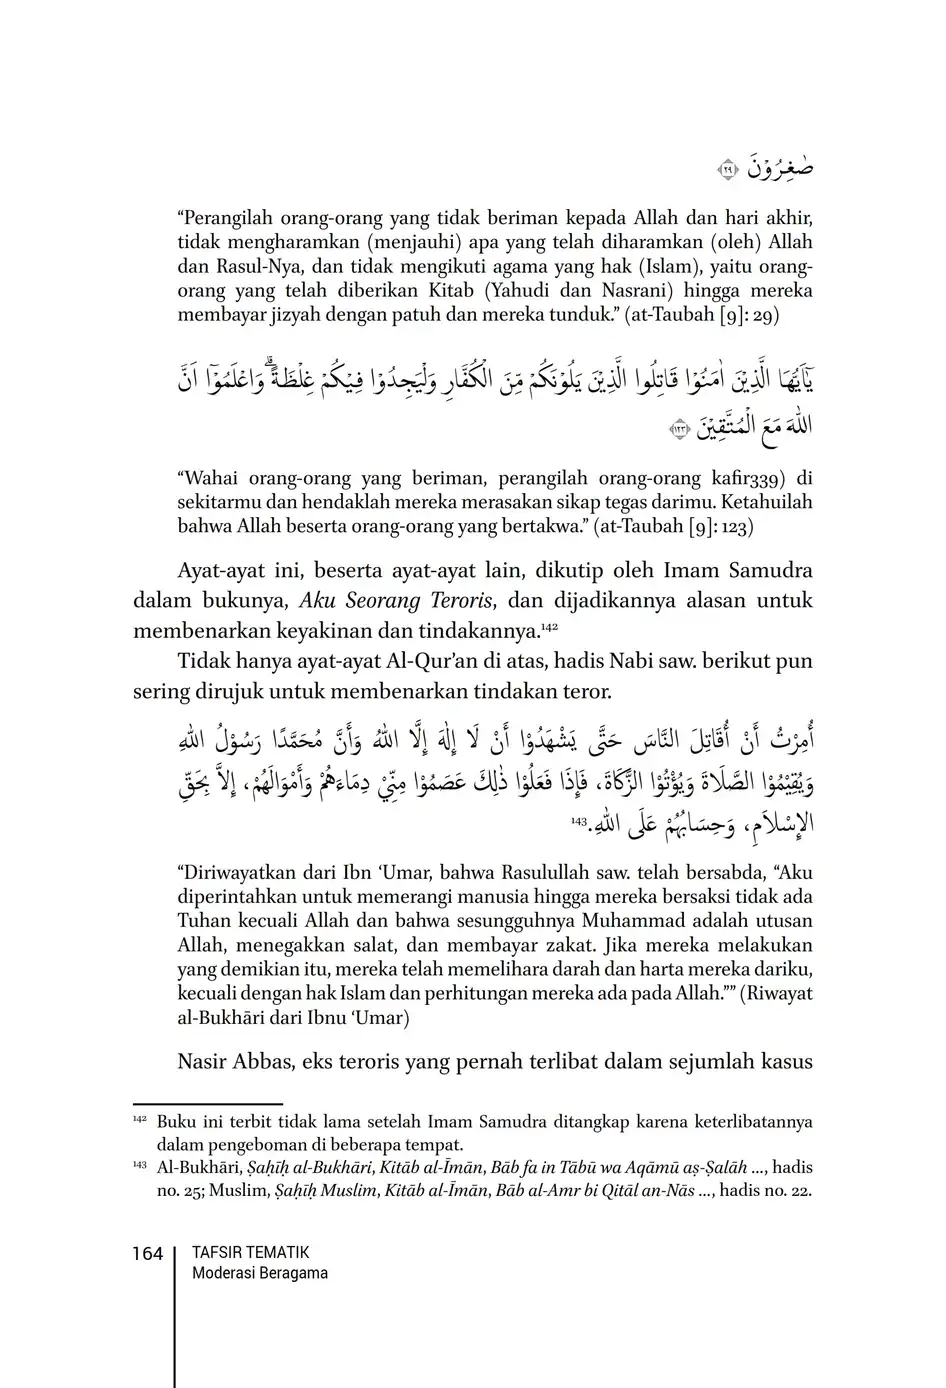 صٰغِرُوْنَ ۝٢٩
“Perangilah orang-orang yang tidak beriman kepada Allah dan hari akhir,
tidak mengharamkan (menjauhi) apa yang telah diharamkan (oleh) Allah
dan Rasul-Nya, dan tidak mengikuti agama yang hak (Islam), yaitu orang-
orang yang telah diberikan Kitab (Yahudi dan Nasrani) hingga mereka
membayar jizyah dengan patuh dan mereka tunduk.” (at-Taubah [9]: 29)
يٰٓاَيُّهَا الَّذِيْنَ اٰمَنُوْا قَاتِلُوا الَّذِيْنَ يَلُوْنَكُمْ مِّنَ الْكُفَّارِ وَلْيَجِدُوْا فِيْكُمْ غِلْظَةًۗ وَاعْلَمُوْٓا اَنَّ
اللّٰهَ مَعَ الْمُتَّقِيْنَ ۝١٢٣
“Wahai orang-orang yang beriman, perangilah orang-orang kafir339) di
sekitarmu dan hendaklah mereka merasakan sikap tegas darimu. Ketahuilah
bahwa Allah beserta orang-orang yang bertakwa.” (at-Taubah [9]: 123)
Ayat-ayat ini, beserta ayat-ayat lain, dikutip oleh Imam Samudra
dalam bukunya, Aku Seorang Teroris, dan dijadikannya alasan untuk
membenarkan keyakinan dan tindakannya.¹⁴²
Tidak hanya ayat-ayat Al-Qur’an di atas, hadis Nabi saw. berikut pun
sering dirujuk untuk membenarkan tindakan teror.
أُمِرْتُ أَنْ أُقَاتِلَ النَّاسَ حَتَّى يَشْهَدُوْا أَنْ لَا إِلٰهَ إِلَّا اللهُ وَأَنَّ مُحَمَّدًا رَسُوْلُ اللهِ
وَيُقِيْمُوْا الصَّلَاةَ وَيُؤْتُوْا الزَّكَاةَ، فَإِذَا فَعَلُوْا ذٰلِكَ عَصَمُوْا مِنِّيْ دِمَاءَهُمْ وَأَمْوَالَهُمْ، إِلاَّ بِحَقِّ
الإِسْلاَمِ، وَحِسَابُهُمْ عَلَى اللهِ.¹⁴³
“Diriwayatkan dari Ibn ‘Umar, bahwa Rasulullah saw. telah bersabda, “Aku
diperintahkan untuk memerangi manusia hingga mereka bersaksi tidak ada
Tuhan kecuali Allah dan bahwa sesungguhnya Muhammad adalah utusan
Allah, menegakkan salat, dan membayar zakat. Jika mereka melakukan
yang demikian itu, mereka telah memelihara darah dan harta mereka dariku,
kecuali dengan hak Islam dan perhitungan mereka ada pada Allah.”” (Riwayat
al-Bukhāri dari Ibnu ‘Umar)
Nasir Abbas, eks teroris yang pernah terlibat dalam sejumlah kasus
¹⁴² Buku ini terbit tidak lama setelah Imam Samudra ditangkap karena keterlibatannya
dalam pengeboman di beberapa tempat.
¹⁴³ Al-Bukhāri, Ṣaḥīḥ al-Bukhāri, Kitāb al-Īmān, Bāb fa in Tābū wa Aqāmū aṣ-Ṣalāh ..., hadis
no. 25; Muslim, Ṣaḥīḥ Muslim, Kitāb al-Īmān, Bāb al-Amr bi Qitāl an-Nās ..., hadis no. 22.
164
TAFSIR TEMATIK
Moderasi Beragama